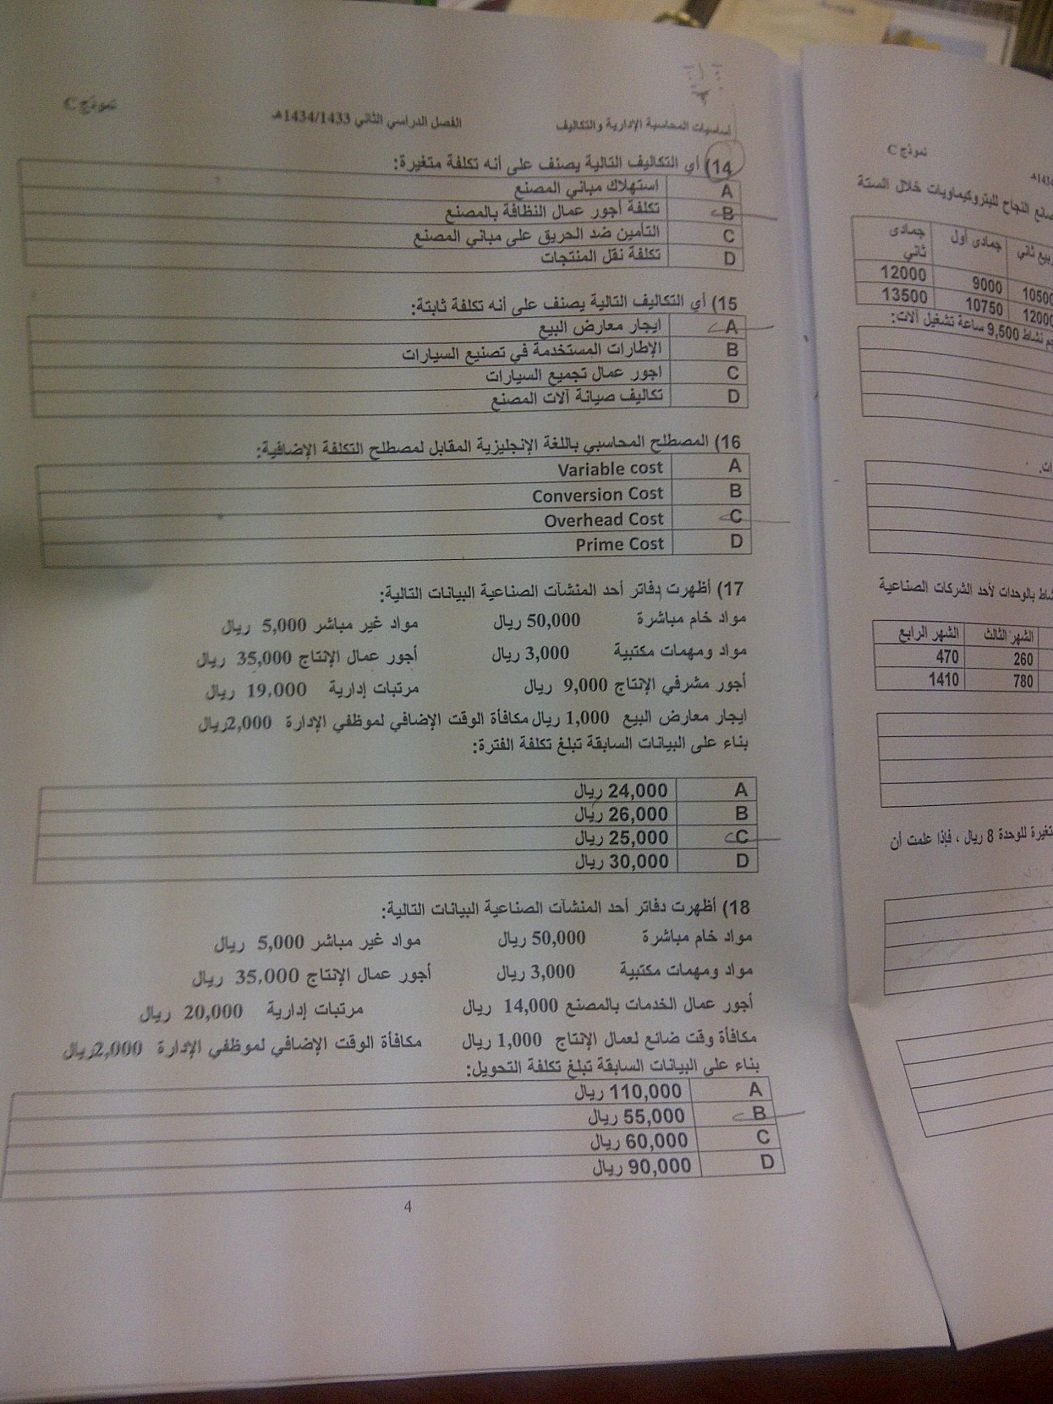 أساسيات المحاسبة الإدارية والتكاليف الفصل الدراسي الثاني 1434/1433هـ نموذج C
14) أي التكاليف التالية يصنف على أنه تكلفة متغيرة:
A استهلاك مباني المصنع
B تكلفة أجور عمال النظافة بالمصنع
C التأمين ضد الحريق على مباني المصنع
D تكلفة نقل المنتجات
15) أي التكاليف التالية يصنف على أنه تكلفة ثابتة:
A ايجار معارض البيع
B الإطارات المستخدمة في تصنيع السيارات
C اجور عمال تجميع السيارات
D تكاليف صيانة آلات المصنع
16) المصطلح المحاسبي باللغة الإنجليزية المقابل لمصطلح التكلفة الإضافية:
A Variable cost
B Conversion Cost
C Overhead Cost
D Prime Cost
17) أظهرت دفاتر أحد المنشآت الصناعية البيانات التالية:
مواد خام مباشرة 50,000 ريال مواد غير مباشر 5,000 ريال
مواد ومهمات مكتبية 3,000 ريال أجور عمال الإنتاج 35,000 ريال
أجور مشرفي الإنتاج 9,000 ريال مرتبات إدارية 19,000 ريال
ايجار معارض البيع 1,000 ريال مكافأة الوقت الإضافي لموظفي الإدارة 2,000ريال
بناء على البيانات السابقة تبلغ تكلفة الفترة:
A 24,000 ريال
B 26,000 ريال
C 25,000 ريال
D 30,000 ريال
18) أظهرت دفاتر أحد المنشآت الصناعية البيانات التالية:
مواد خام مباشرة 50,000 ريال مواد غير مباشر 5,000 ريال
مواد ومهمات مكتبية 3,000 ريال أجور عمال الإنتاج 35,000 ريال
أجور عمال الخدمات بالمصنع 14,000 ريال مرتبات إدارية 20,000 ريال
مكافأة وقت ضائع لعمال الإنتاج 1,000 ريال مكافأة الوقت الإضافي لموظفي الإدارة 2,000ريال
بناء على البيانات السابقة تبلغ تكلفة التحويل:
A 110,000 ريال
B 55,000 ريال
C 60,000 ريال
D 90,000 ريال
4
نموذج C
النجاح للبتروكيماويات خلال الستة
ربيع ثاني جمادى أول جمادى ثاني
10500 9000 12000
12000 10750 13500
نشاط 9,500 ساعة تشغيل آلات:
بالوحدات لأحد الشركات الصناعية
الشهر الثالث الشهر الرابع
260 470
780 1410
للوحدة 8 ريال ، فإذا علمت أن